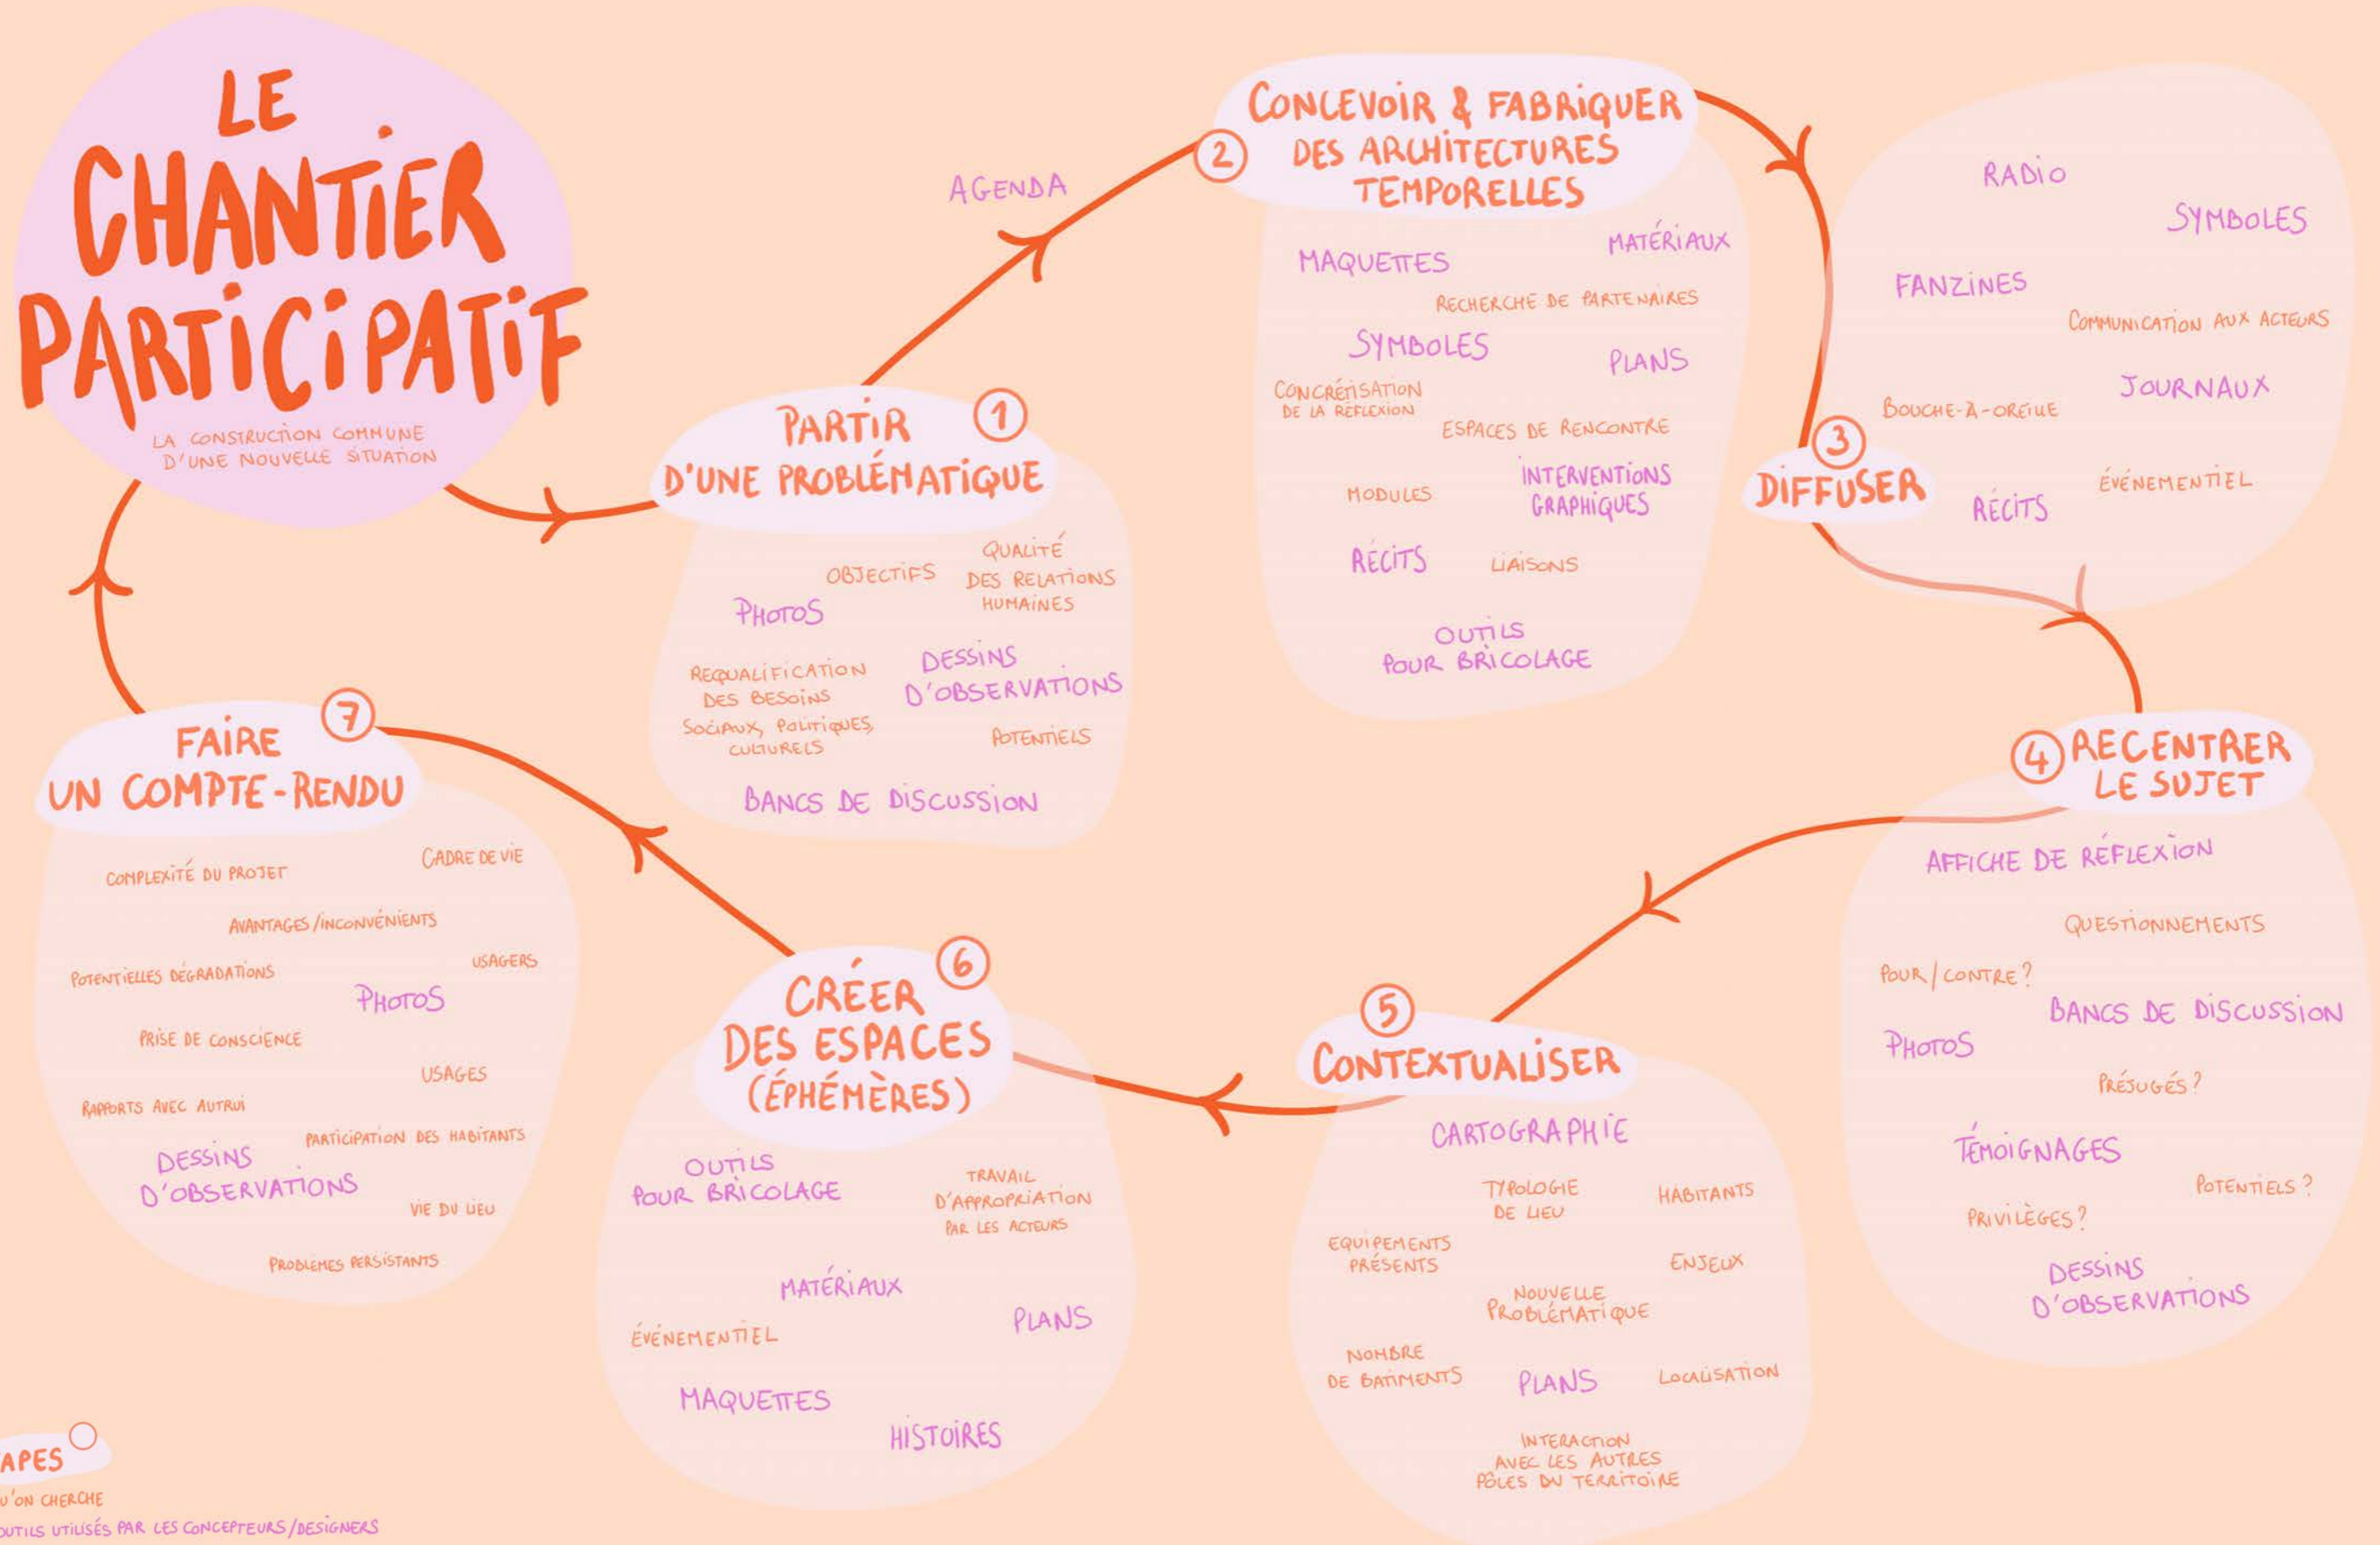 LE
CHANTIER
PARTICIPATIF
LA CONSTRUCTION COMMUNE
D'UNE NOUVELLE SITUATION
PARTIR
1
D'UNE PROBLÉMATIQUE
OBJECTIFS
QUALITÉ
DES RELATIONS
HUMAINES
PHOTOS
REQUALIFICATION
DES BESOINS
SOCIAUX, POLITIQUES,
CULTURELS
DESSINS
D'OBSERVATIONS
POTENTIELS
BANCS DE DISCUSSION
AGENDA
2
CONCEVOIR & FABRIQUER
DES ARCHITECTURES
TEMPORELLES
MAQUETTES
MATÉRIAUX
RECHERCHE DE PARTENAIRES
SYMBOLES
PLANS
CONCRÉTISATION
DE LA RÉFLEXION
ESPACES DE RENCONTRE
MODULES
INTERVENTIONS
GRAPHIQUES
RÉCITS
LIAISONS
OUTILS
POUR BRICOLAGE
3
DIFFUSER
RADIO
SYMBOLES
FANZINES
COMMUNICATION AUX ACTEURS
JOURNAUX
BOUCHE-À-OREILLE
ÉVÉNEMENTIEL
RÉCITS
4
RECENTRER
LE SUJET
AFFICHE DE RÉFLEXION
QUESTIONNEMENTS
POUR/CONTRE?
BANCS DE DISCUSSION
PHOTOS
PRÉJUGÉS?
TÉMOIGNAGES
POTENTIELS?
PRIVILÈGES?
DESSINS
D'OBSERVATIONS
5
CONTEXTUALISER
CARTOGRAPHIE
TYPOLOGIE
DE LIEU
HABITANTS
EQUIPEMENTS
PRÉSENTS
ENJEUX
NOUVELLE
PROBLÉMATIQUE
NOMBRE
DE BATIMENTS
PLANS
LOCALISATION
INTERACTION
AVEC LES AUTRES
PÔLES DU TERRITOIRE
6
CRÉER
DES ESPACES
(ÉPHÉMÈRES)
OUTILS
POUR BRICOLAGE
TRAVAIL
D'APPROPRIATION
PAR LES ACTEURS
MATÉRIAUX
PLANS
ÉVÉNEMENTIEL
MAQUETTES
HISTOIRES
7
FAIRE
UN COMPTE-RENDU
COMPLEXITÉ DU PROJET
CADRE DE VIE
AVANTAGES/INCONVÉNIENTS
POTENTIELLES DÉGRADATIONS
USAGERS
PHOTOS
PRISE DE CONSCIENCE
USAGES
RAPPORTS AVEC AUTRUI
PARTICIPATION DES HABITANTS
DESSINS
D'OBSERVATIONS
VIE DU LIEU
PROBLÈMES PERSISTANTS
APES
U'ON CHERCHE
OUTILS UTILISÉS PAR LES CONCEPTEURS/DESIGNERS